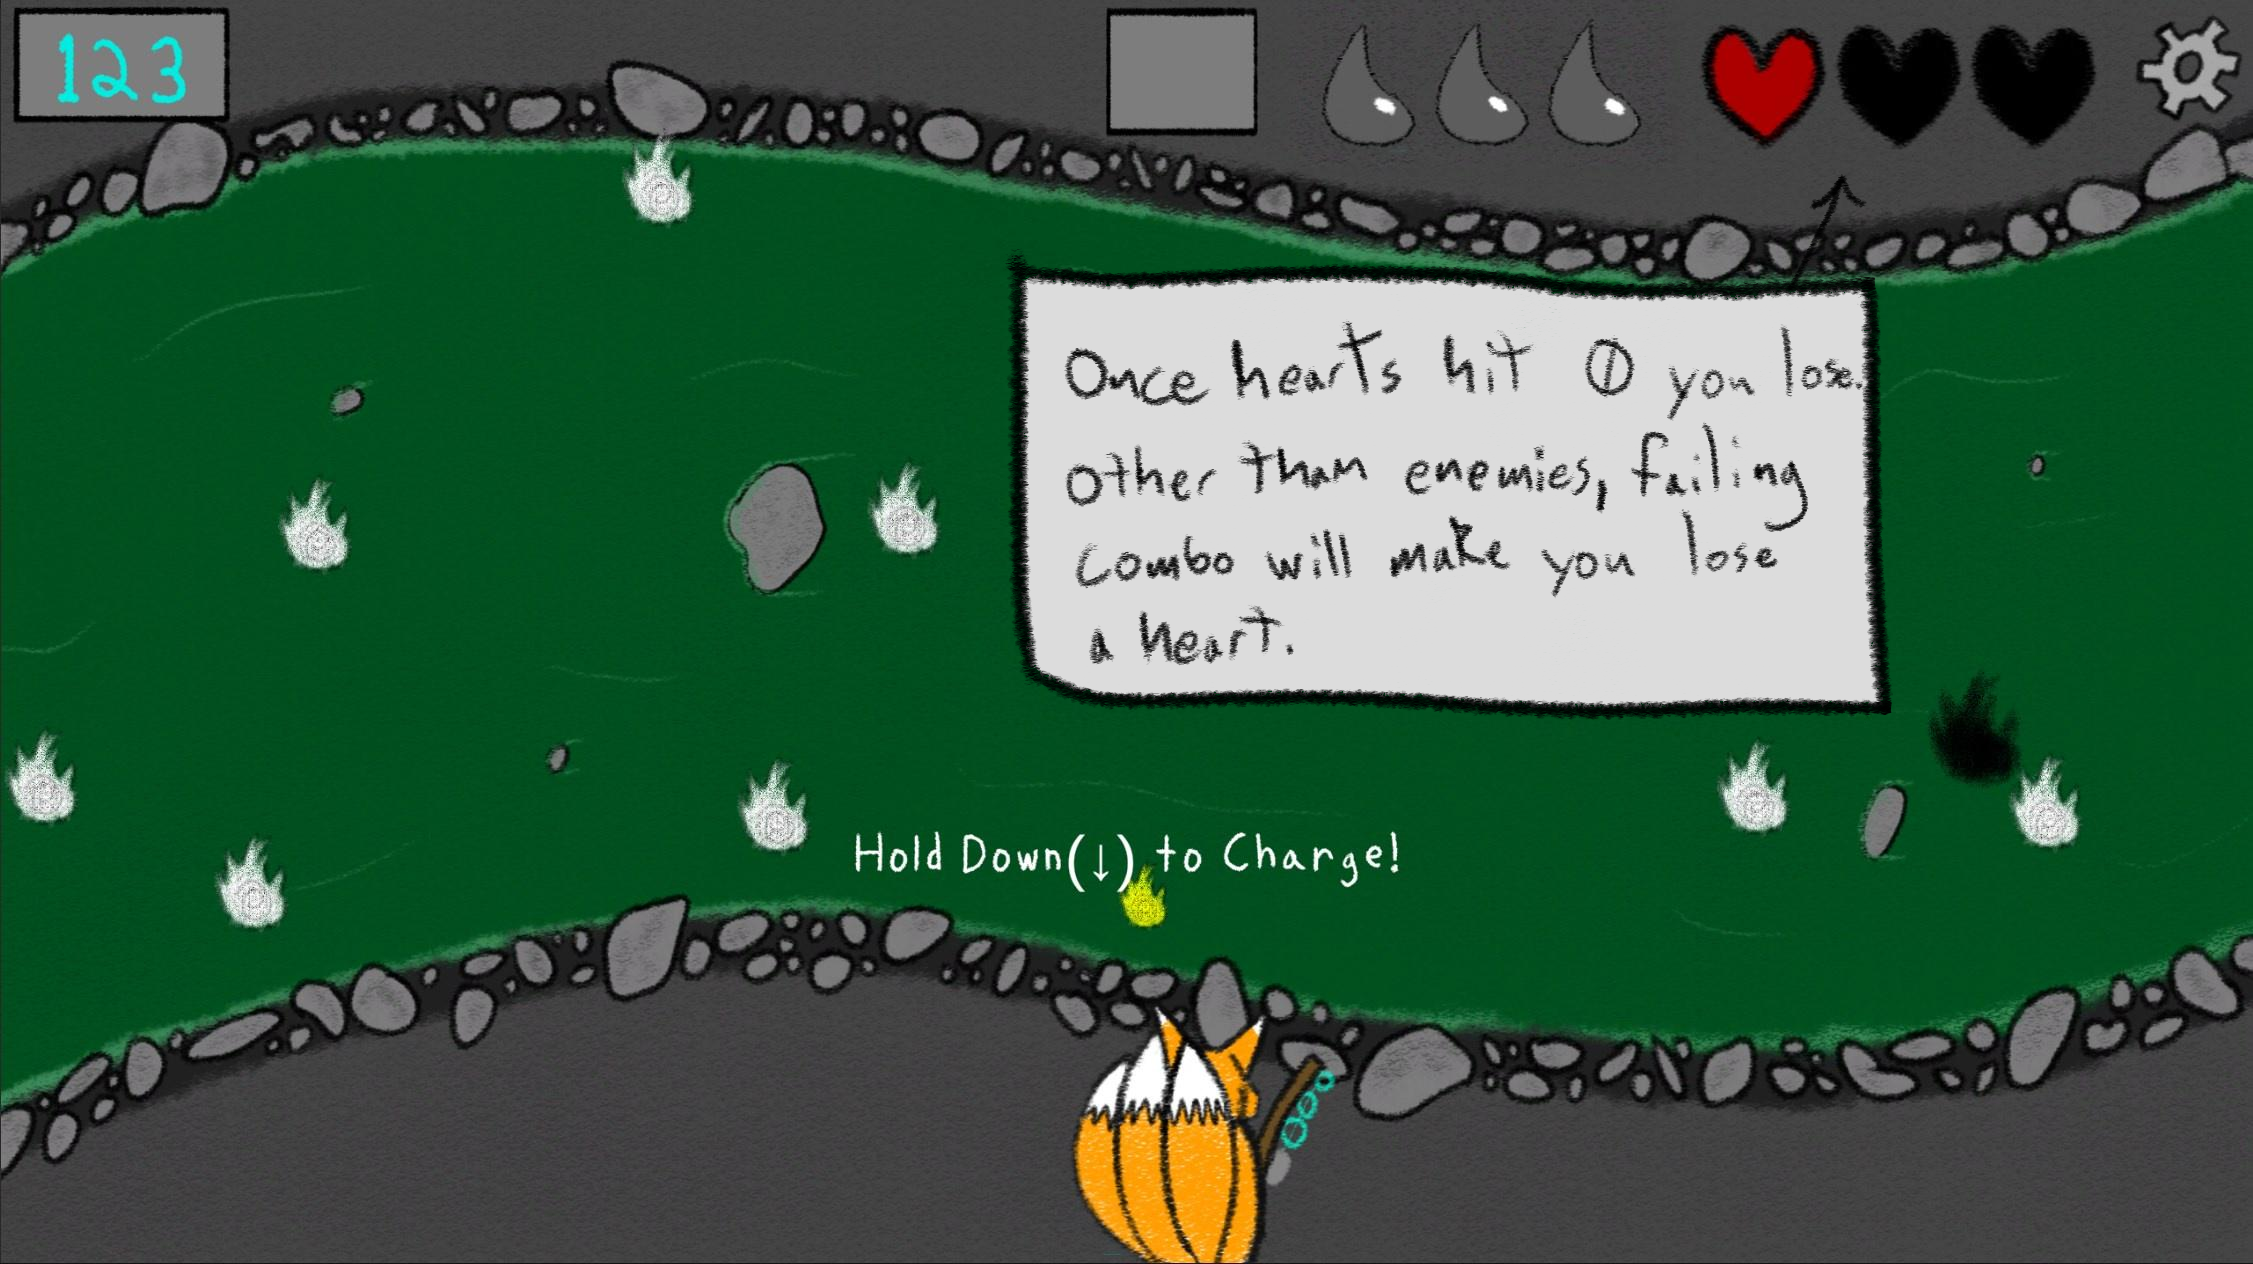 123
Once hearts hit 0 you lose.
Other than enemies, failing
combo will make you lose
a heart.
Hold Down(↓) to Charge!